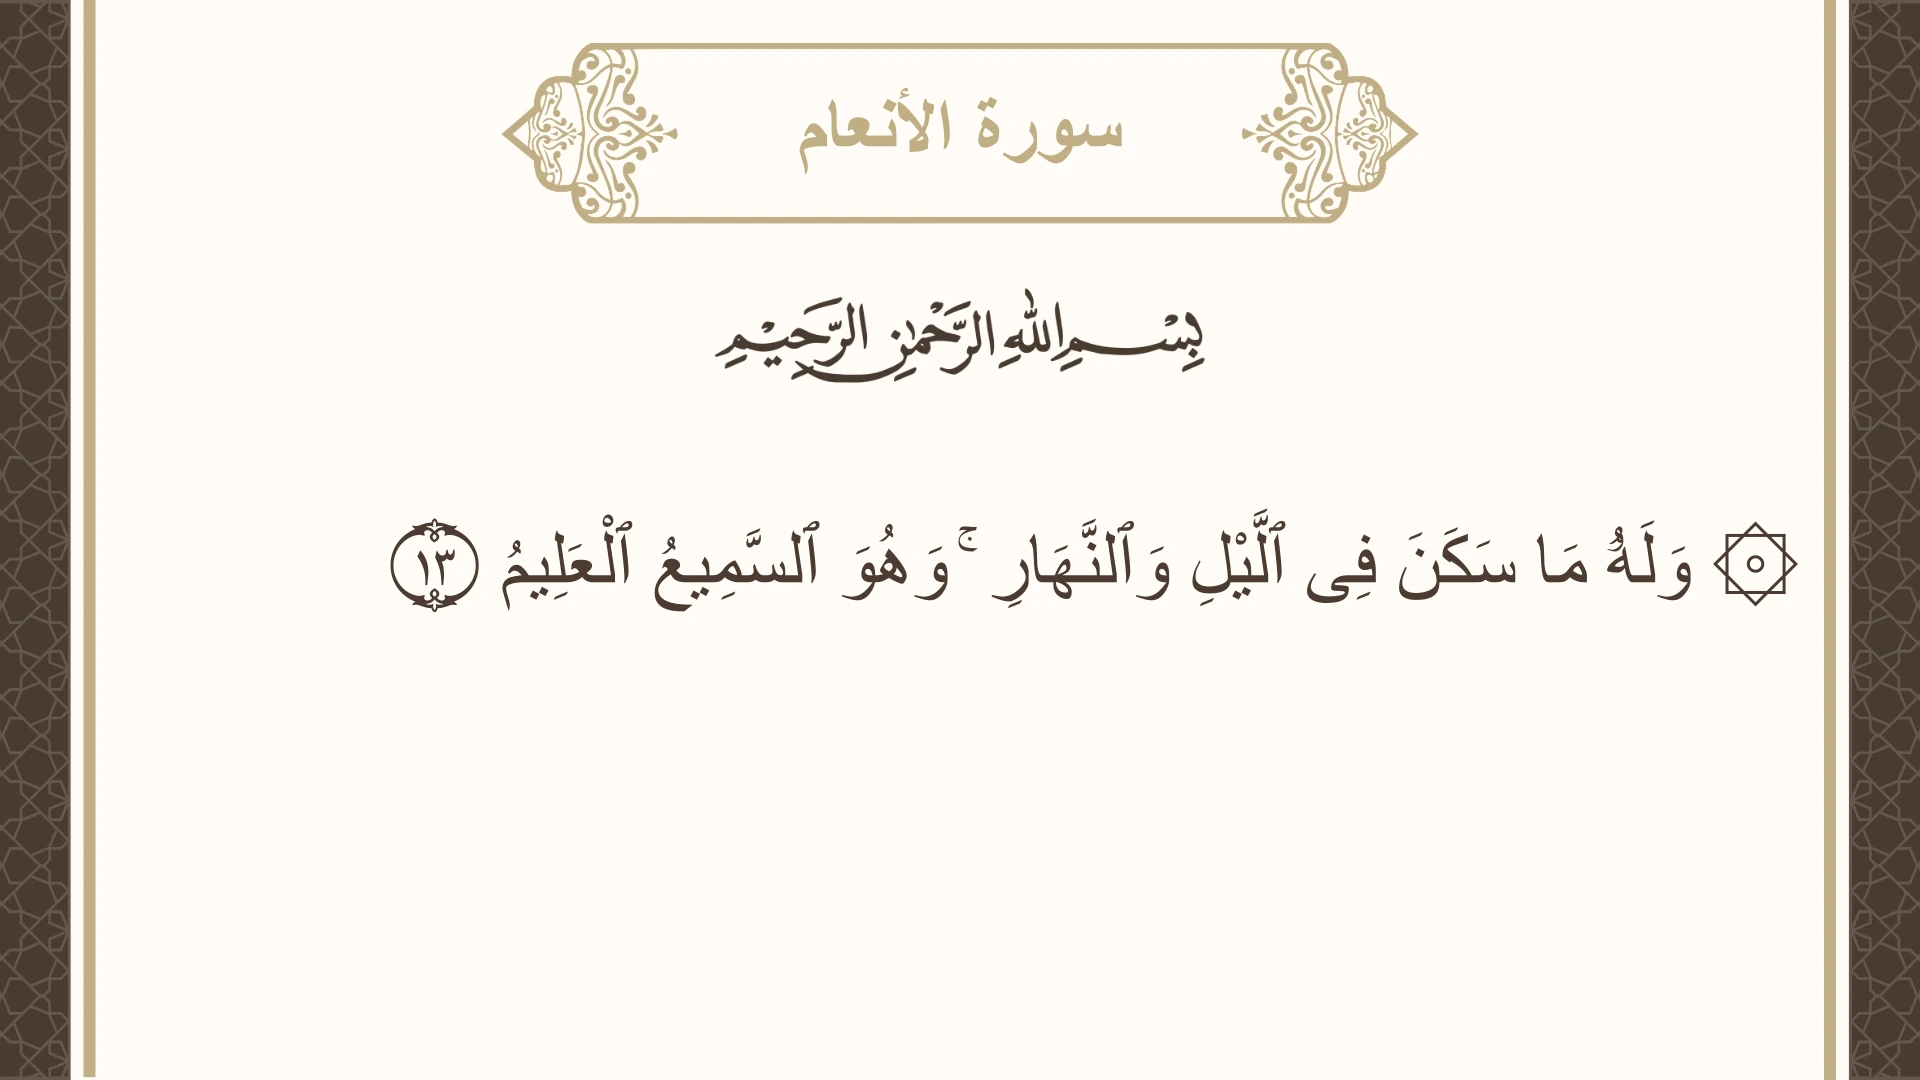 سورة الأنعام
بِسْمِ اللهِ الرَّحْمٰنِ الرَّحِيْمِ
۞ وَلَهُۥ مَا سَكَنَ فِى ٱلَّيْلِ وَٱلنَّهَارِ ۚ وَهُوَ ٱلسَّمِيعُ ٱلْعَلِيمُ ١٣